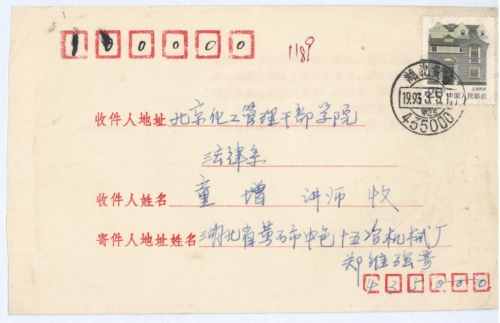 100000
1189
上海民居
中国人民邮政
湖北黄石
1993.3.5.17
435000
收件人地址 北京化工管理干部学院
法律系
收件人姓名 童增 讲师 收
寄件人地址姓名 湖北省黄石市中色十五冶机械厂
郑维强寄
435000